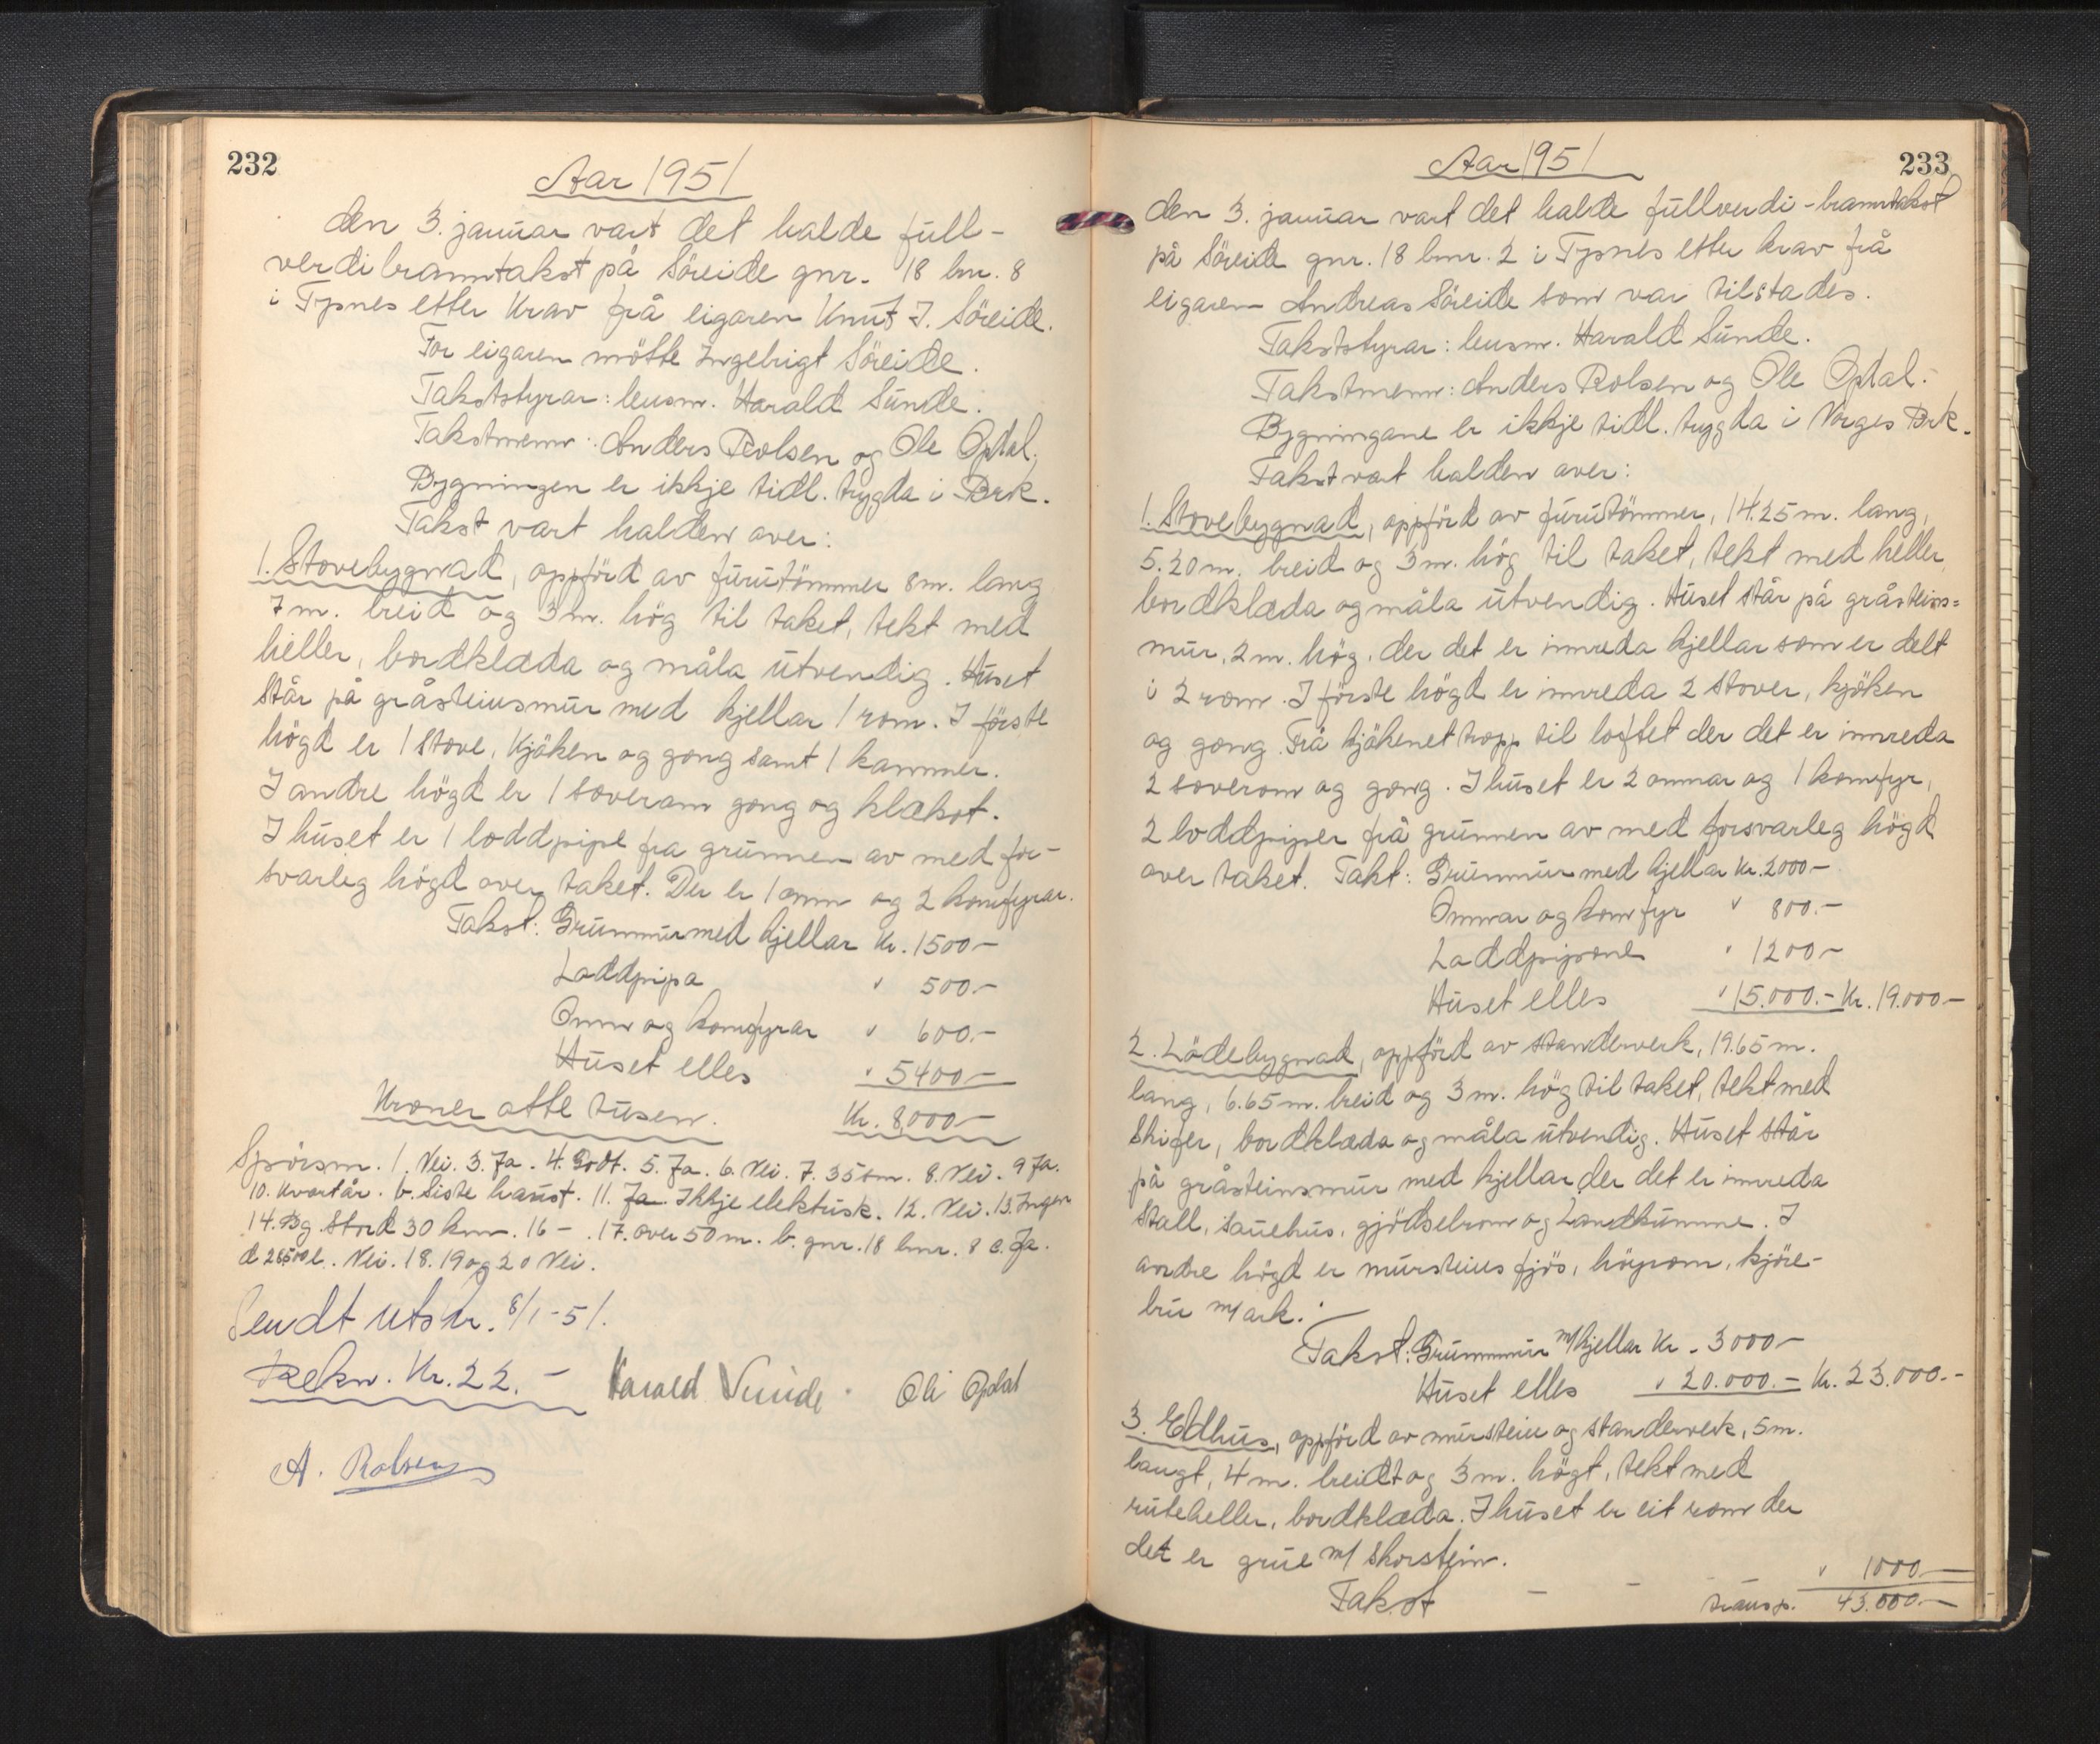 232
Aar 1951
den 3. januar vart det halde full-
verdibranntakst på Söreide gnr. 18 bnr. 8
i Tysnes etter krav frå eigaren Knut J. Söreide.
For eigaren mötte Ingebrigt Söreide.
Takststyrar: lensm. Harald Sunde.
Takstmenn: Anders Rolsen og Ole Opdal.
Bygningen er ikkje tidl. trygda i Brk.
Takst vart halden over:
1. Stovebygnad, oppförd av furutömmer 8 m. lang
7 m. breid og 3 m. hög til taket, tekt med
heller, bordklæda og måla utvendig. Huset
står på gråsteinsmur med kjellar 1 rom. I förste
högd er 1 stove, kjöken og gong samt 1 kammer.
I andre högd er 1 soverom gong og klækot.
I huset er 1 loddpipe fra grunnen av med for-
svarleg högd over taket. Der er 1 omn og 2 komfyrar.
Takst: Grunnmur med kjellar Kr. 1500 -
Loddpipa " 500.-
Omn og komfyrar " 600.-
Huset elles " 5400 -
Kroner otte tusen. Kr. 8,000 -
Spörsm. 1. Nei. 3. Ja. 4. Godt. 5. Ja. 6. Nei. 7. 35 om. 8. Nei. 9 Ja.
10. Kvartår. b. Siste haust. 11. Ja. Ikkje elektrisk. 12. Nei. 13. Ingen
14. Bg. Stord 30 km. 16 - . 17. over 50 m. b. gnr. 18 bnr. 8 c. Ja.
d 28500 e. Nei. 18. 19 og 20 Nei.
Sendt utskr. 8/1-51.
Rekn. Kr. 22.-
Harald Sunde. Ole Opdal
A. Rolsen
Aar 1951
233
den 3. januar vart det halde fullverdi-branntakst
på Söreide gnr. 18 bnr. 2 i Tysnes etter krav frå
eigaren Andreas Söreide som var tilstades.
Takststyrar: lensm. Harald Sunde.
Takstmenn: Anders Rolsen og Ole Opdal.
Bygningane er ikkje tidl. trygda i Norges Brk.
Takst vart halden over:
1. Stovebygnad, oppförd av furutömmer, 14.25 m. lang,
5.20 m. breid og 3 m. hög til taket, tekt med heller,
bordklæda og måla utvendig. Huset står på gråsteins=
mur, 2 m. hög, der det er innreda kjellar som er delt
i 2 rom. I förste högd er innreda 2 stover, kjöken
og gong. Frå kjökenet tropp til loftet der det er innreda
2 soverom og gong. I huset er 2 omnar og 1 komfyr,
2 loddpiper frå grunnen av med forsvarleg högd
over taket. Takt: Grunnmur med kjellar Kr. 2000 -
Omnar og komfyr " 800.-
Loddpipone " 1200 -
Huset elles " 15.000.- Kr. 19.000 -
2. Lödebygnad, oppförd av standerverk, 19.65 m.
lang, 6.65 m. breid og 3 m. hög til taket, tekt med
Skifer, bordklæda og måla utvendig. Huset står
på gråsteinsmur med kjellar der det er innreda
Stall, sauehus, gjödselrom og Landkumme. I
andre högd er mursteins fjös, höyrom, kjöre-
bru m/ ark.
Takst: Grunnmur m/ kjellar Kr. 3000 -
Huset elles " 20.000.- Kr. 23.000.-
3. Eldhus, oppförd av murstein og standerverk, 5 m.
langt, 4 m. breidt og 3 m. högt, tekt med
ruteheller, bordklæda. I huset er eit rom der
det er grue m/ skorstein.
Takst - - " 1000 -
transp. 43.000 -